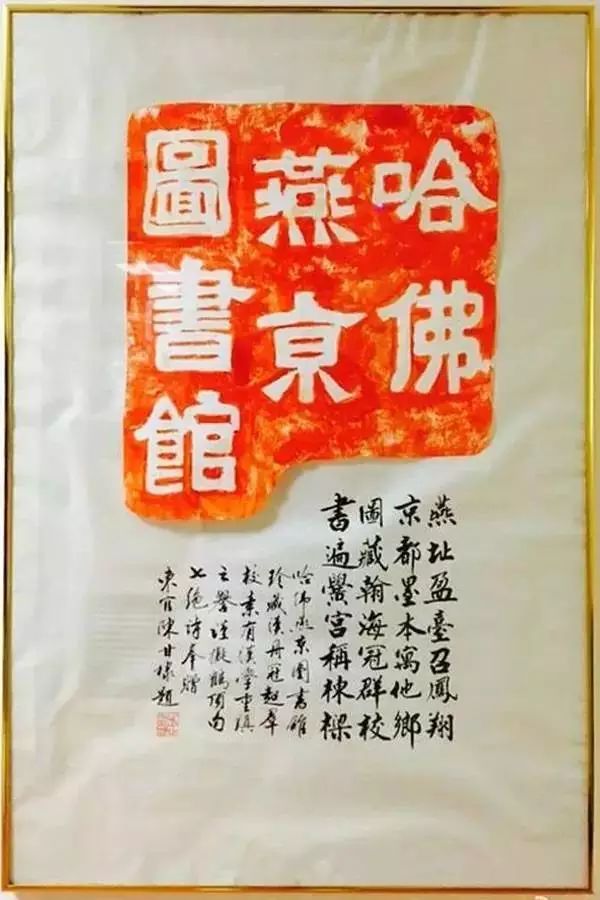 哈佛
燕京
圖書館
燕址盈臺召鳳翔
京都墨本寓他鄉
圖藏翰海冠群校
書遍黌宮稱棟樑
哈佛燕京圖書館
珍藏漢冊冠越群
校素有漢學重鎮
之譽謹擬鶴頂由
七絕詩奉贈
東官陳甘棣題